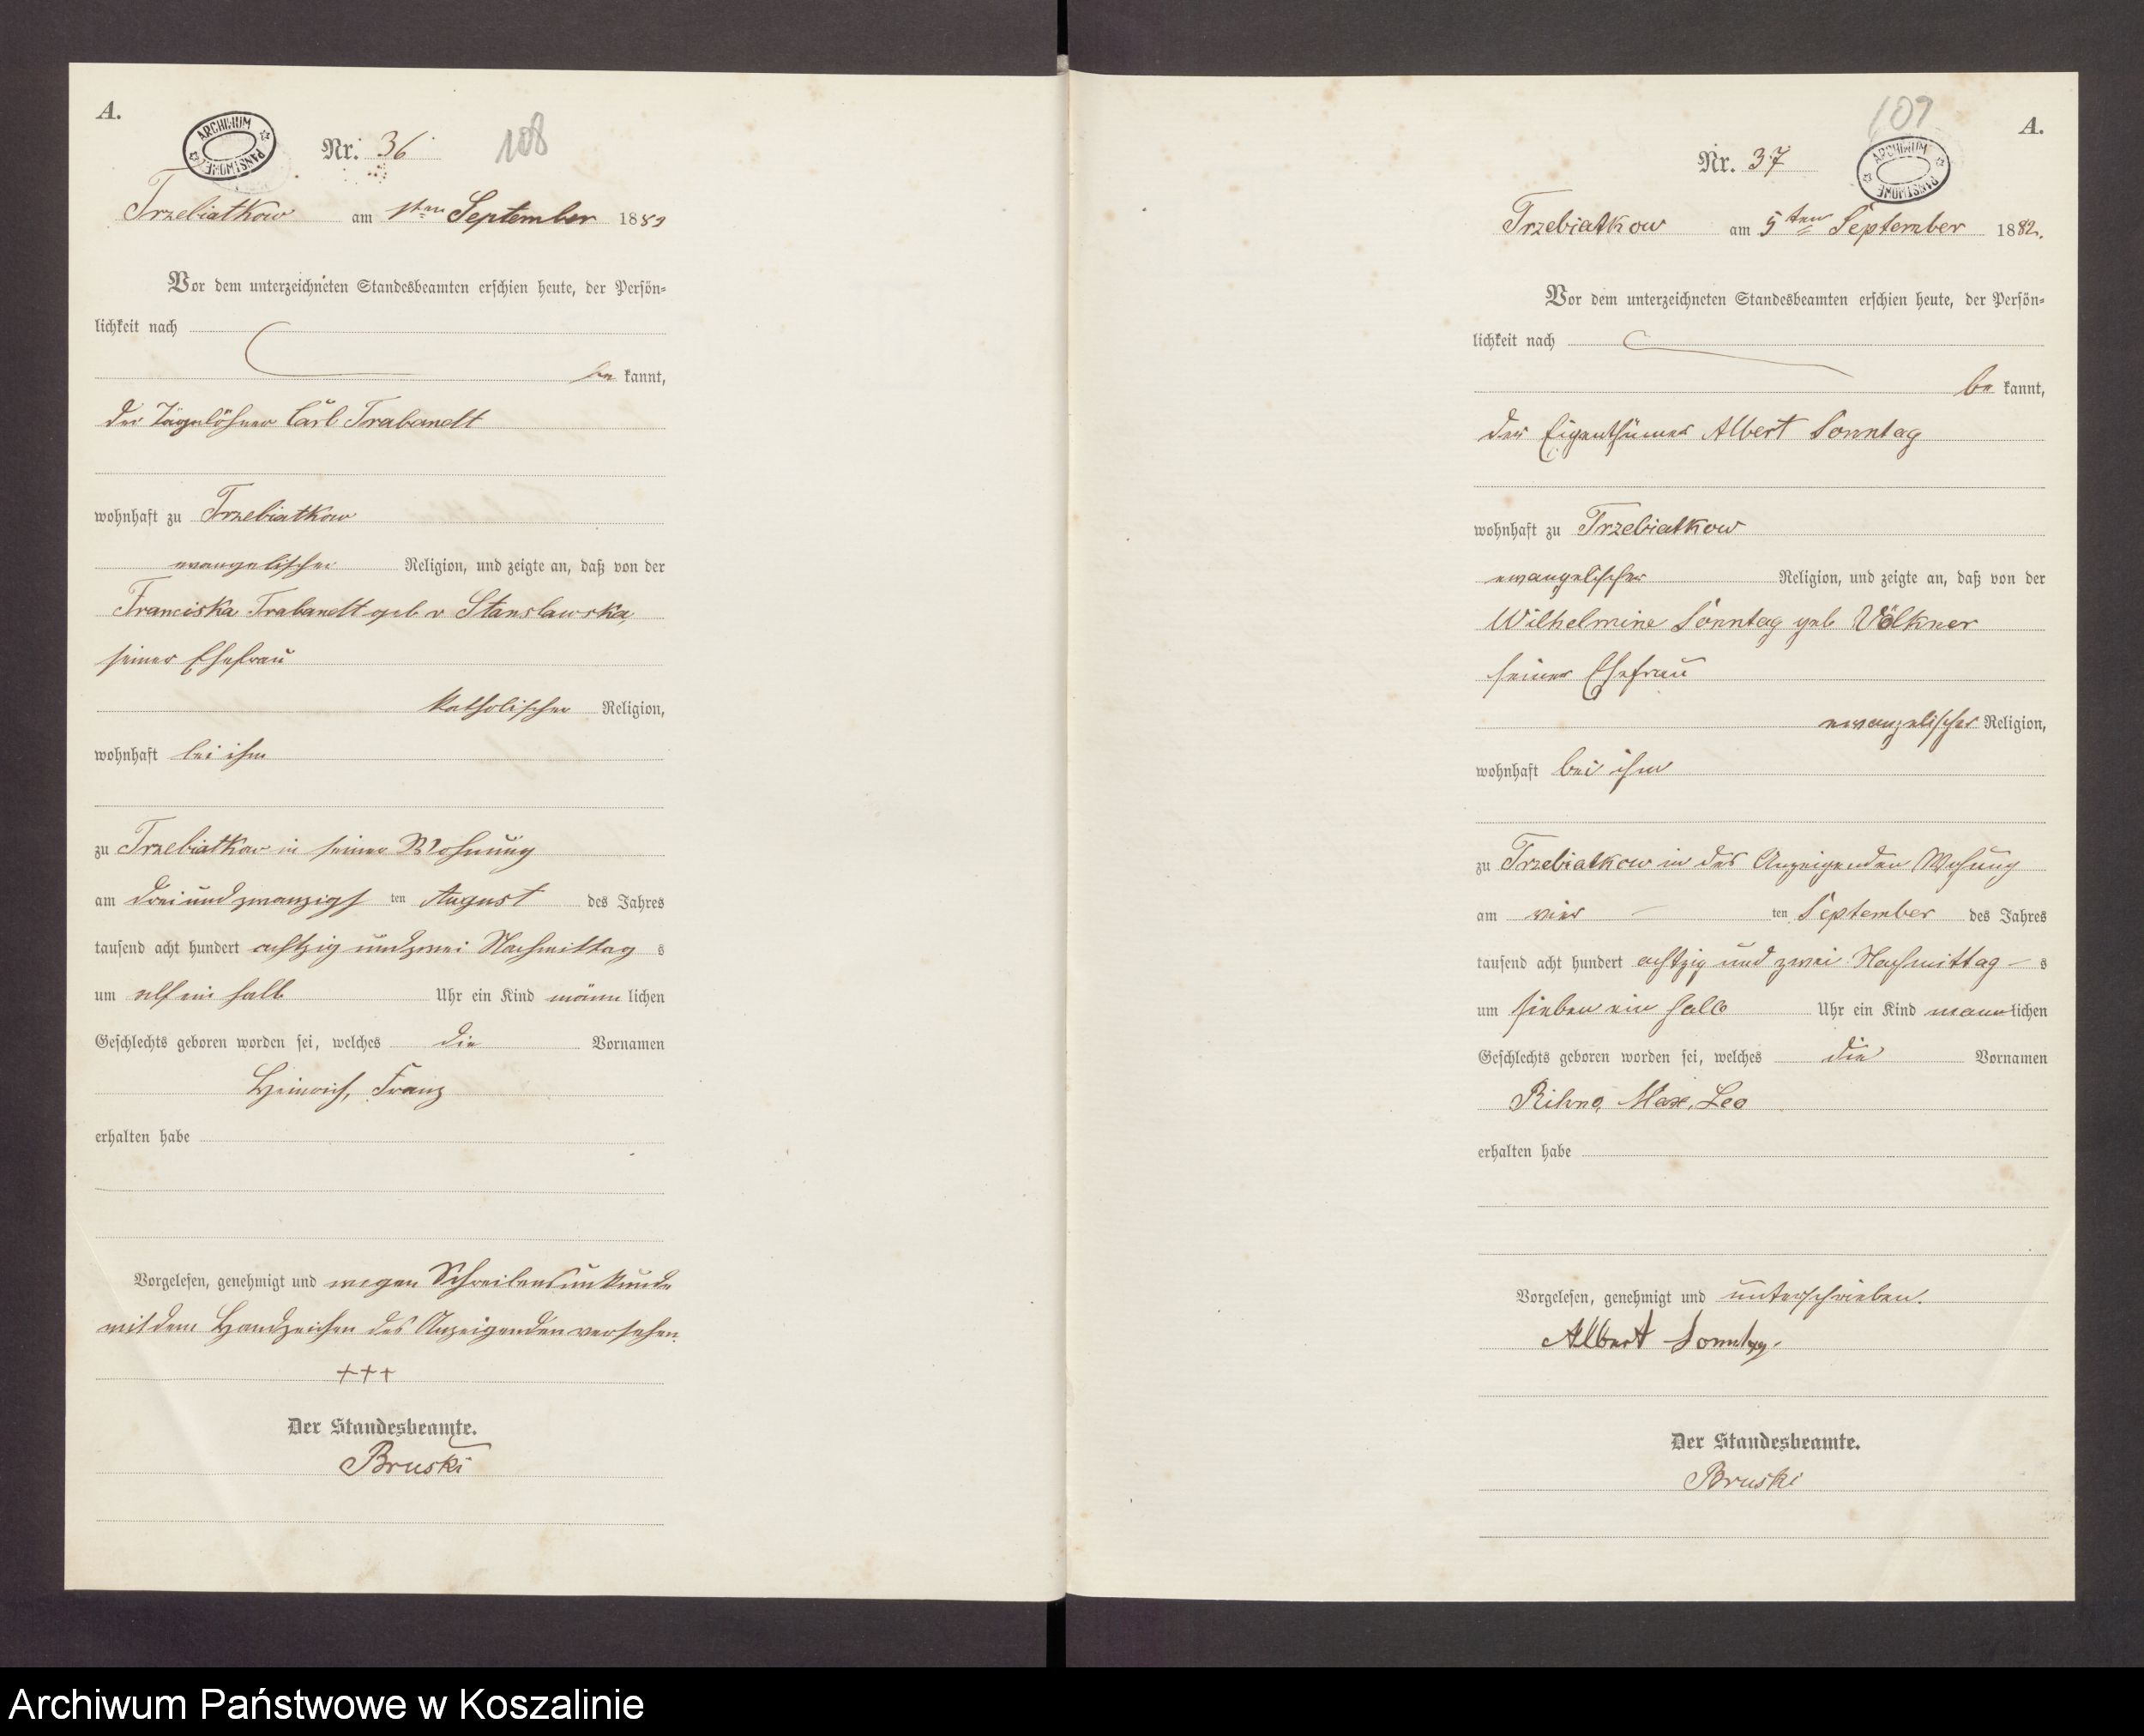 A.
ARCHIWUM PAŃSTWOWE
Nr. 36
108
Trzebiatkow am 1sten September 1882
Vor dem unterzeichneten Standesbeamten erschien heute, der Persön-
lichkeit nach
be kannt,
der Tagelöhner Carl Trabandt
wohnhaft zu Trzebiatkow
evangelischer Religion, und zeigte an, daß von der
Franciska Trabandt geb v Stanslawska,
seiner Ehefrau
katholischer Religion,
wohnhaft bei ihm
zu Trzebiatkow in seiner Wohnung
am dreiundzwanzigs ten August des Jahres
tausend acht hundert achtzig und zwei Nachmittag s
um elf ein halb Uhr ein Kind männ lichen
Geschlechts geboren worden sei, welches die Vornamen
Heinrich, Franz
erhalten habe
Vorgelesen, genehmigt und wegen Schreibensunkunde
mit dem Handzeichen des Anzeigenden versehen.
+++
Der Standesbeamte.
Bruski
109
A.
ARCHIWUM PAŃSTWOWE
Nr. 37
Trzebiatkow am 5ten September 1882.
Vor dem unterzeichneten Standesbeamten erschien heute, der Persön-
lichkeit nach
be kannt,
der Eigenthümer Albert Sonntag
wohnhaft zu Trzebiatkow
evangelischer Religion, und zeigte an, daß von der
Wilhelmine Sonntag geb Völkner
seiner Ehefrau
evangelischer Religion,
wohnhaft bei ihm
zu Trzebiatkow in des Anzeigenden Wohung
am vier ten September des Jahres
tausend acht hundert achtzig und zwei Nachmittag s
um sieben ein halb Uhr ein Kind männ lichen
Geschlechts geboren worden sei, welches die Vornamen
Max, Leo
erhalten habe
Vorgelesen, genehmigt und unterschrieben.
Albert Sonntag.
Der Standesbeamte.
Bruski
Archiwum Państwowe w Koszalinie